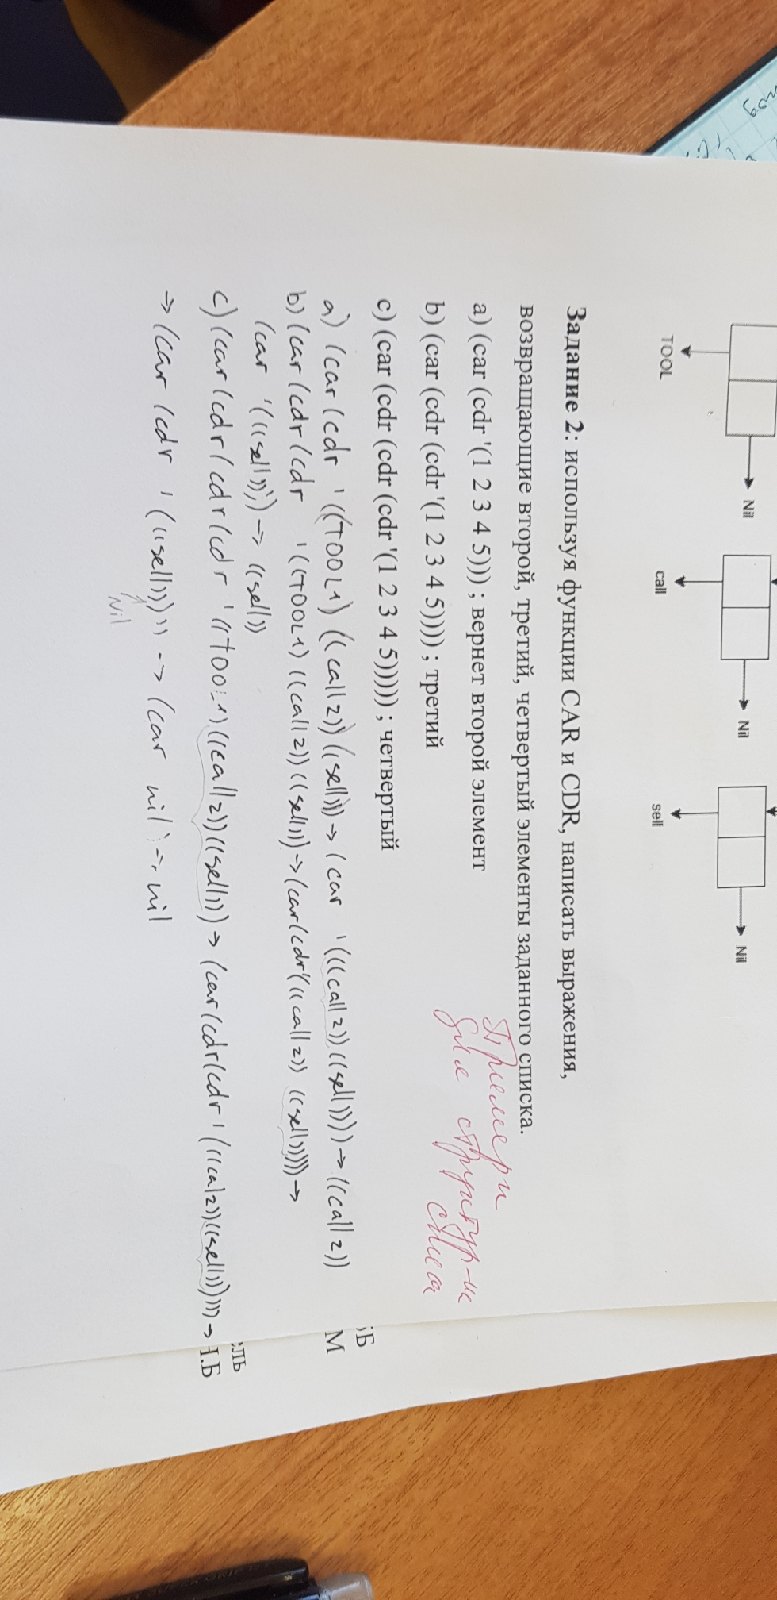 Nil Nil Nil
TOOL call sell
Задание 2: используя функции CAR и CDR, написать выражения,
возвращающие второй, третий, четвертый элементы заданного списка.
Примеры
a) (car (cdr '(1 2 3 4 5))) ; вернет второй элемент
для структур-х
b) (car (cdr (cdr '(1 2 3 4 5)))) ; третий
c) (car (cdr (cdr (cdr '(1 2 3 4 5))))) ; четвертый
a) (car (cdr '((TOOL1) ((call2)) ((sell))) → (car '(((call2)) ((sell)))) → ((call2))
b) (car (cdr (cdr '((TOOL1) ((call2)) ((sell))) → (car (cdr '(((call2)) ((sell))))) →
(car '(((sell)))) → ((sell))
c) (car (cdr (cdr (cdr '((TOOL1) ((call2)) ((sell))) → (car (cdr (cdr '(((call2)) ((sell))))))) →
→ (car (cdr '(((sell))))) → (car nil) → nil
Nil
ББ
М
ЛЬ
Н.Б